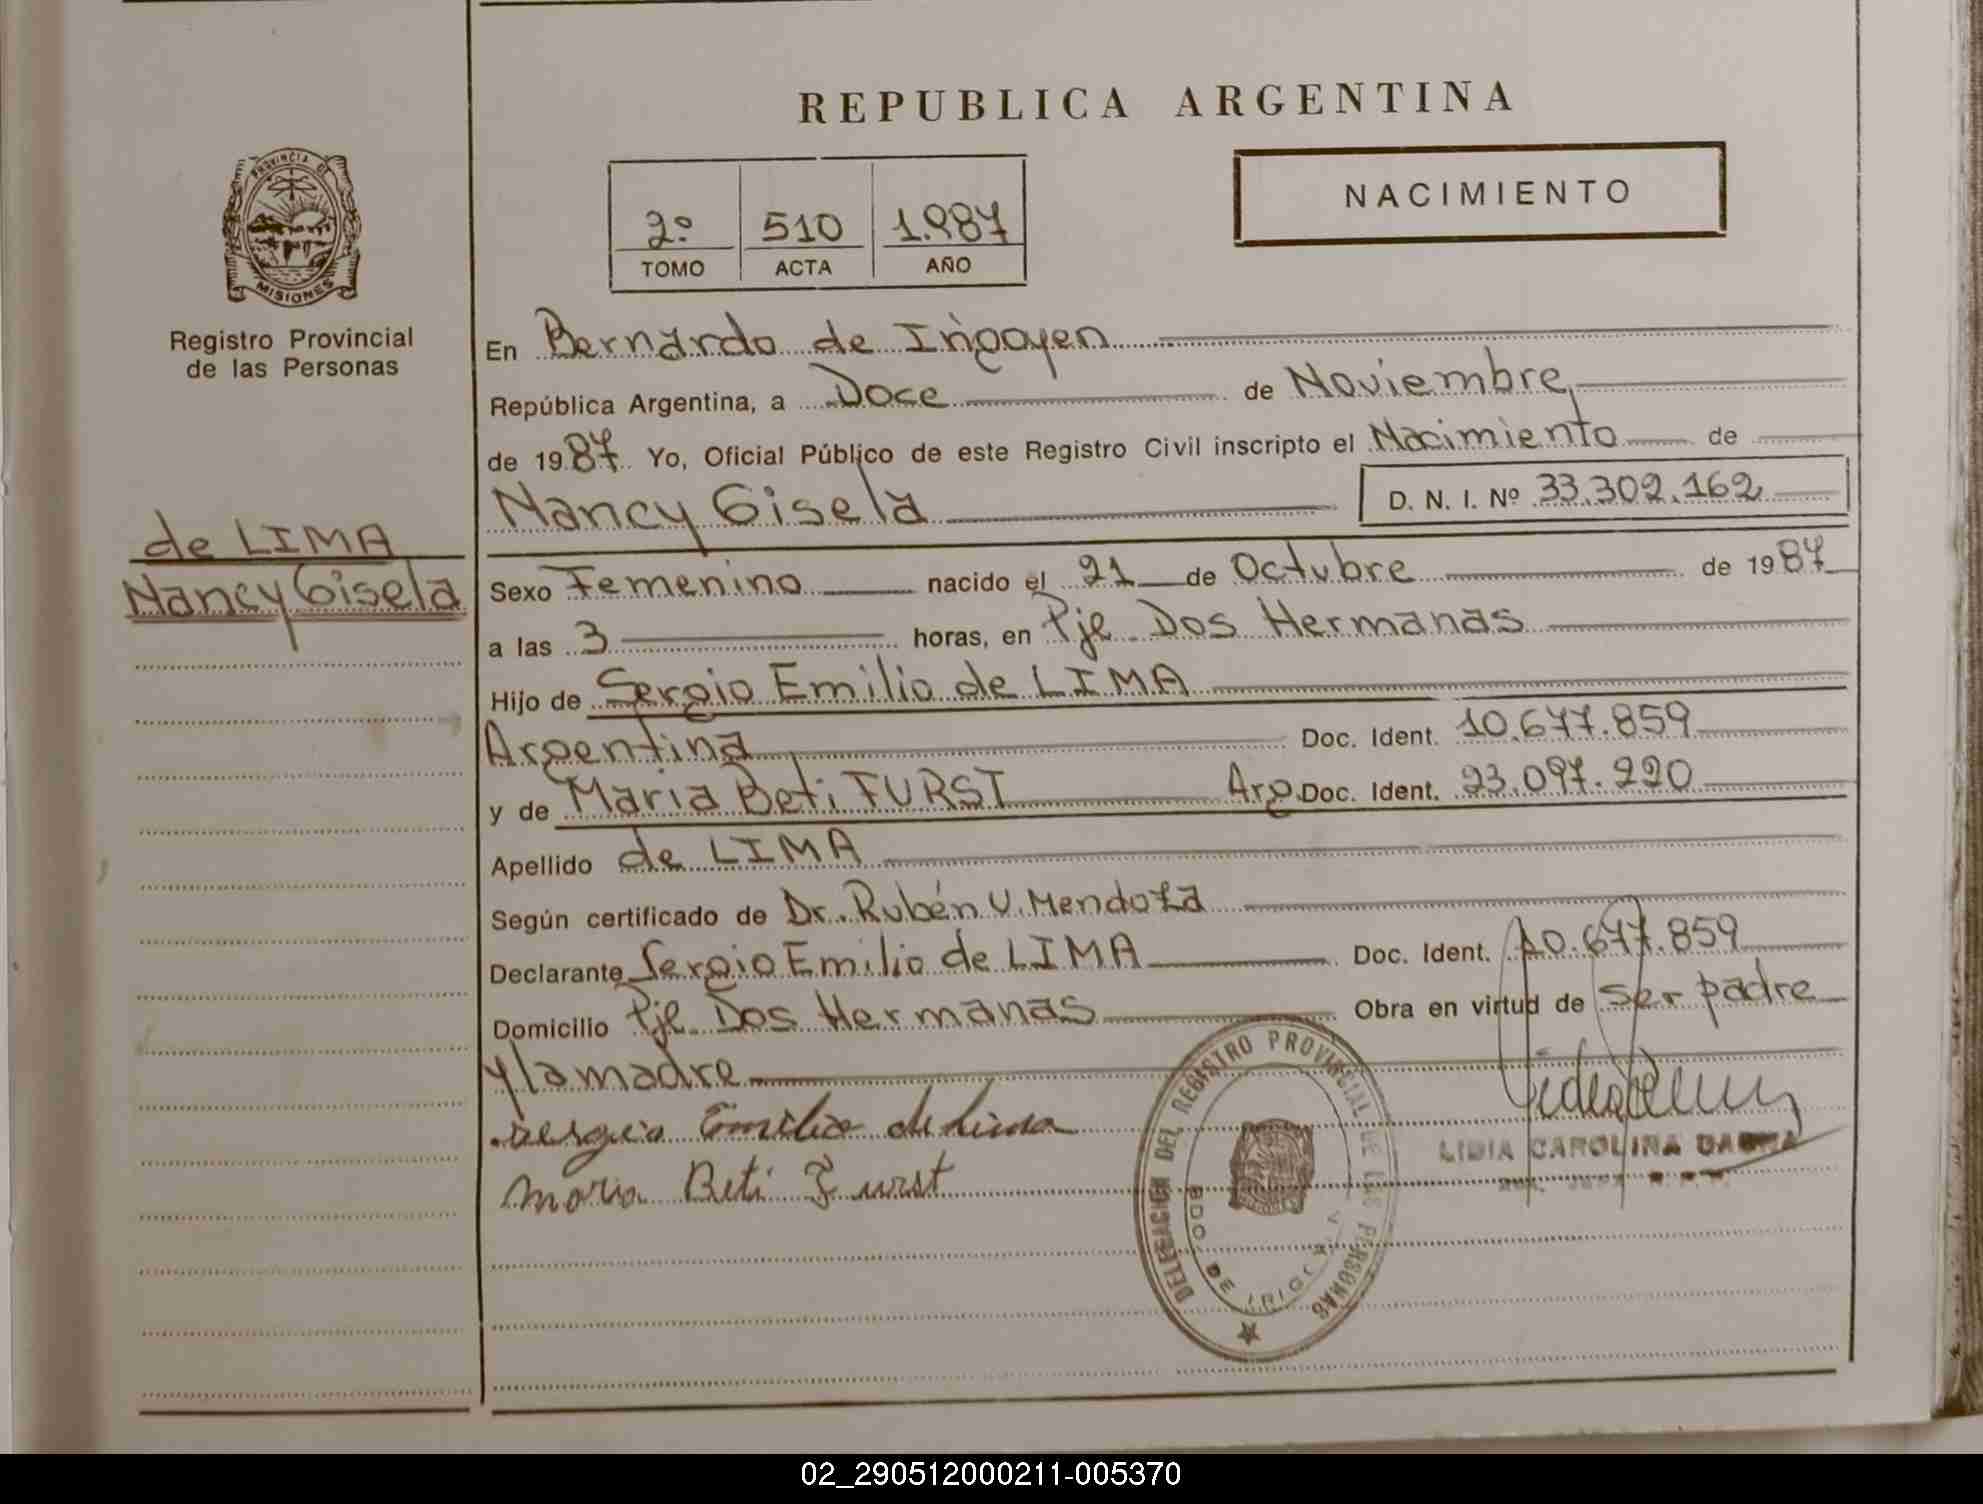 REPUBLICA ARGENTINA
PROVINCIA DE
MISIONES
Registro Provincial
de las Personas
2º 510 1.987
TOMO ACTA AÑO
NACIMIENTO
En Bernardo de Irigoyen
República Argentina, a Doce de Noviembre
de 1987 Yo, Oficial Público de este Registro Civil inscripto el Nacimiento de
Nancy Gisela D. N. I. Nº 33.302.162
de LIMA
Nancy Gisela
Sexo Femenino nacido el 21 de Octubre de 1987
a las 3 horas, en Pje Dos Hermanas
Hijo de Sergio Emilio de LIMA
Argentina Doc. Ident. 10.677.859
y de Maria Beti FURST Arg. Doc. Ident. 23.097.220
Apellido de LIMA
Según certificado de Dr. Rubén V. Mendoza
Declarante Sergio Emilio de LIMA Doc. Ident. 10.677.859
Domicilio Pje Dos Hermanas Obra en virtud de ser padre
y la madre
Sergio Emilio de Lima
Maria Beti Furst
LIDIA CAROLINA
DELEGACION DEL REGISTRO PROVINCIAL DE LAS PERSONAS
BDO DE IRIGOYEN
02_290512000211-005370